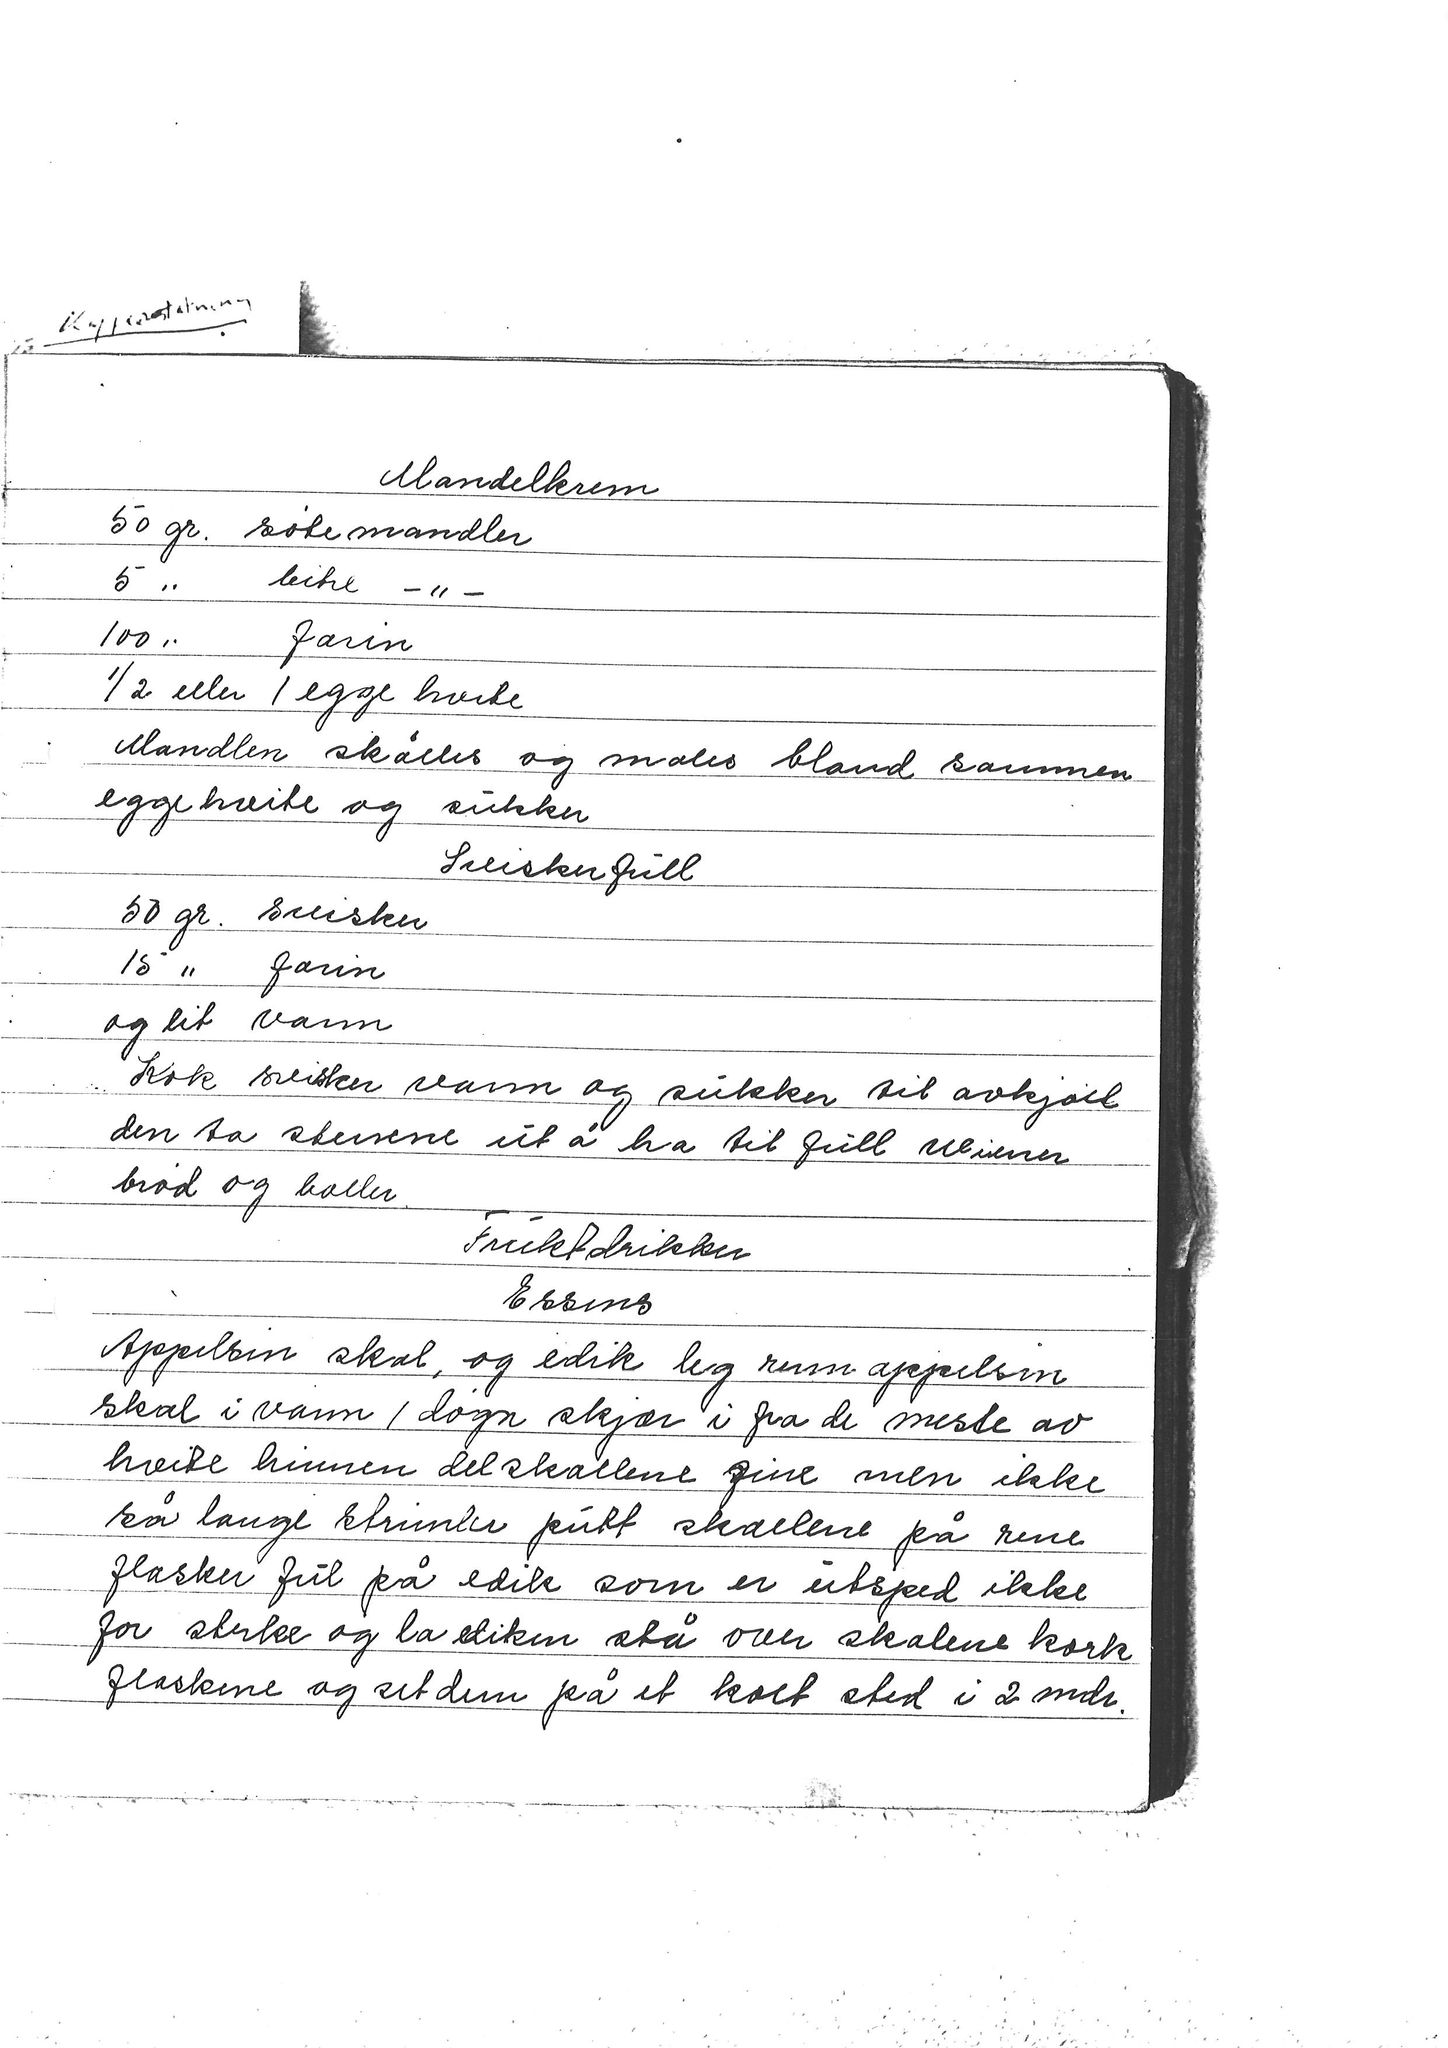 Kaffeerstatning
Mandelkrem
50 gr. søte mandler
5 " bitre - " -
100 " farin
1/2 eller 1 egge hvite
Mandlen skålles og males bland sammen
eggehveite og sukker
Sveiskerfull
50 gr. sveisker
15 " farin
og lit vann
Kok sveisker vann og sukker til avkjølt
den ta stenene ut å ha til full weiener
brød og boller.
Fruktdrikker
Essens
Appelsin skal, og edik leg renn appelsin
skal i vann 1 døgn skjær i fra de meste av
hveite hinnen del skallene fine men ikke
så lange strimler putt skallene på rene
flasker ful på edik som er utsped ikke
for sterke og la ediken stå over skalene kork
flaskene og set dem på et kolt sted i 2 mdr.